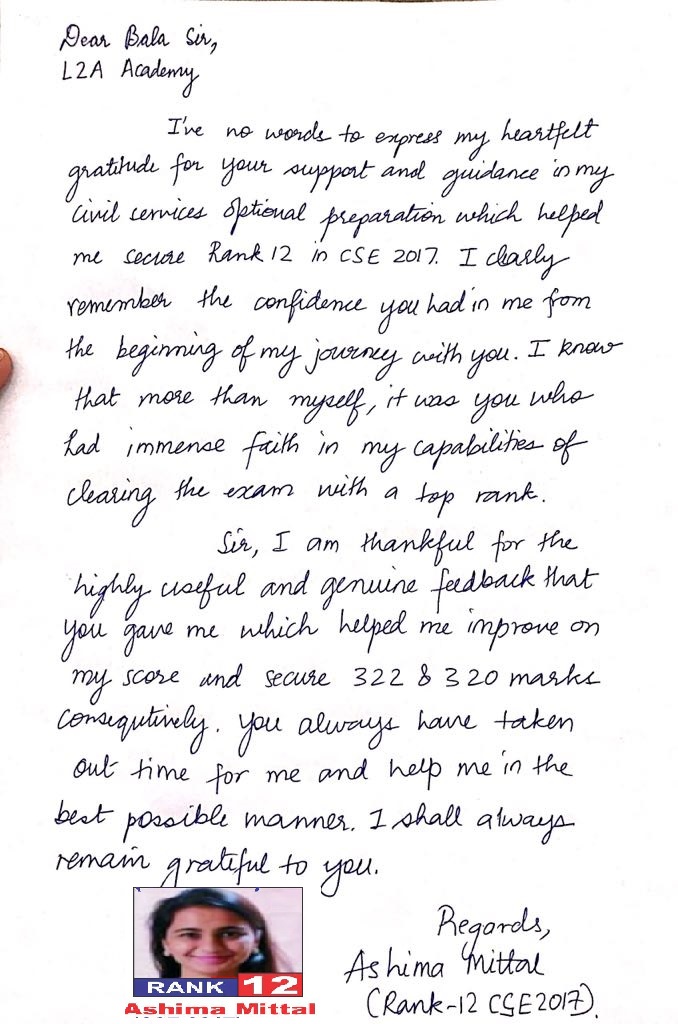 Dear Bala Sir,
L2A Academy
I've no words to express my heartfelt
gratitude for your support and guidance in my
civil services optional preparation which helped
me secure Rank 12 in CSE 2017. I clearly
remember the confidence you had in me from
the beginning of my journey with you. I know
that more than myself, it was you who
had immense faith in my capabilities of
clearing the exam with a top rank.
Sir, I am thankful for the
highly useful and genuine feedback that
you gave me which helped me improve on
my score and secure 322 & 320 marks
consequtively. You always have taken
out time for me and help me in the
best possible manner. I shall always
remain grateful to you.
Regards,
Ashima Mittal
(Rank-12 CSE 2017).
RANK 12
Ashima Mittal